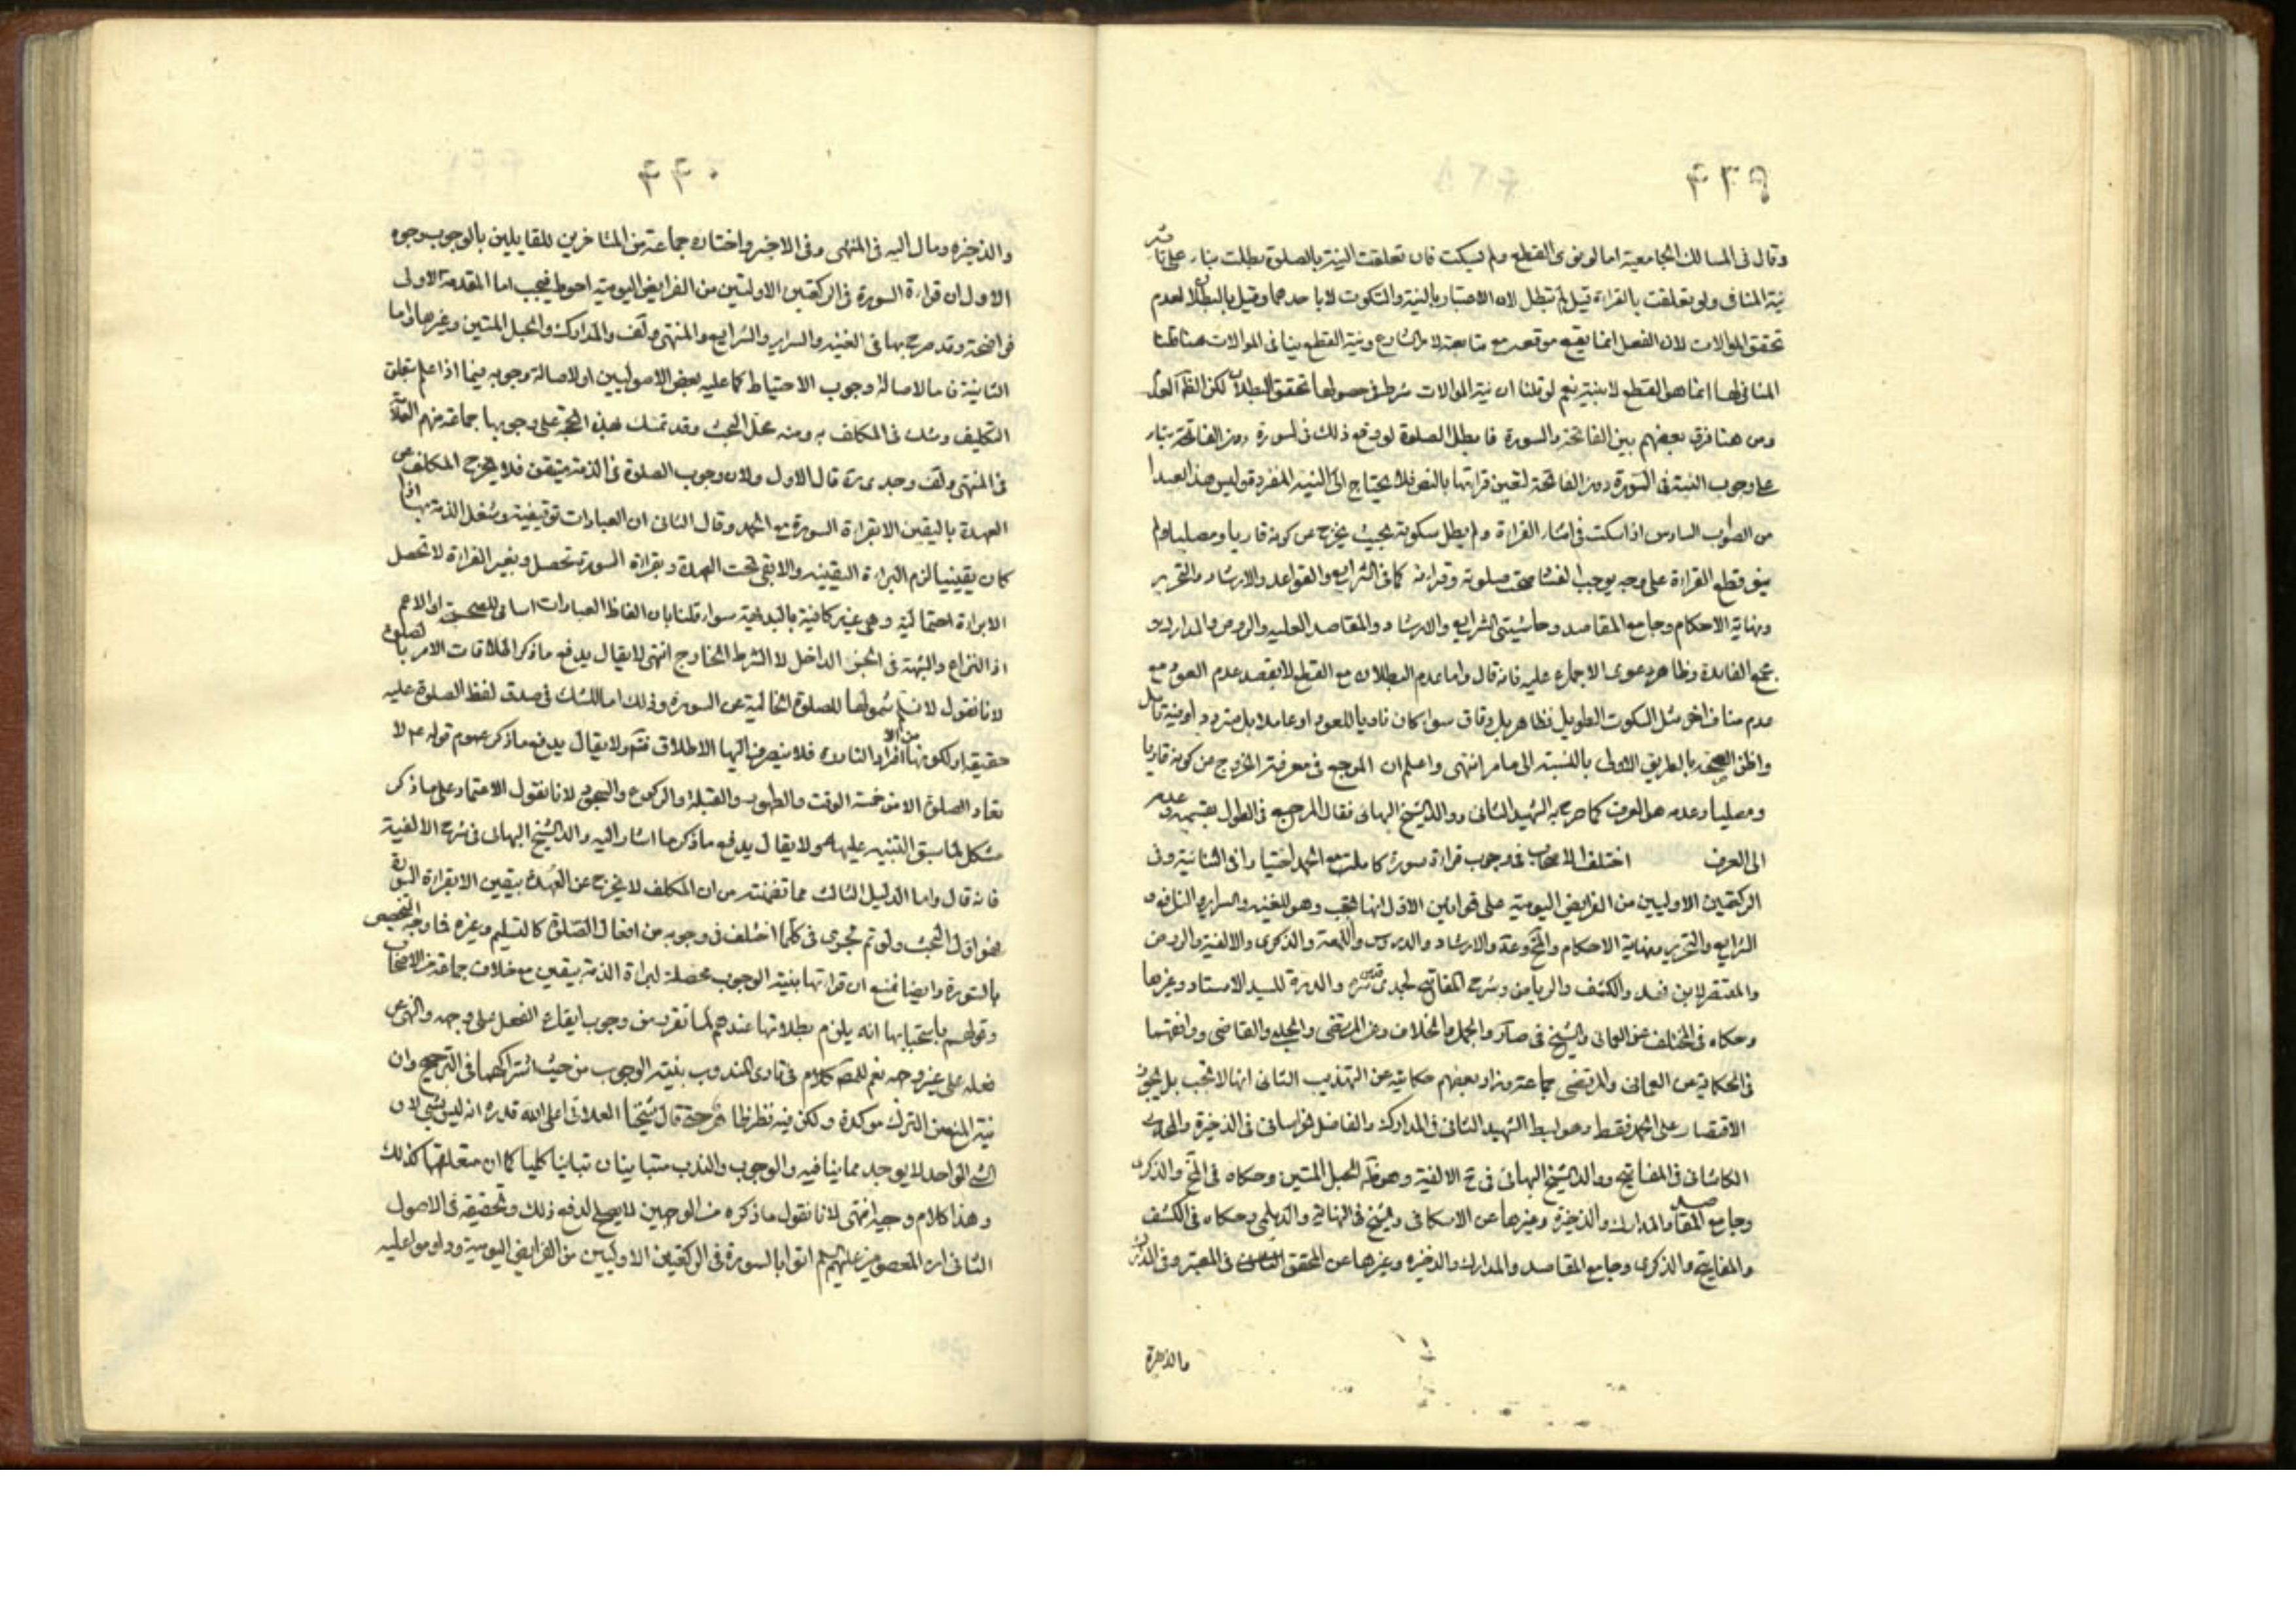 ٤٣٩
وقال في المسالك الجامعية اما لو نوى القطع ولم يسكت فان تعلقت النية بالصلوة بطلت بناء على تاثير
نية المنافى ولو تعلقت بالقراءة قيل لم تبطل لان الاعتبار بالنية والسكوت لا باحدهما وقيل بالبطلان لعدم
تحقق الموالات لان الفعل انما يقع موقعه مع متابعة لامر الشارع ونية القطع ينافى الموالات هنا قلنا
المنافى لها انما هو القطع لا بنية نعم لو قلنا ان نية الموالات شرط في حصولها تحقق البطلان لكن الظ العدم
ومن هنا فرق بعضهم بين الفاتحة والسورة فابطل الصلوة لو وقع ذلك في السورة دون الفاتحة بناء
على وجوب النية في السورة دون الفاتحة لتعين قرائتها بالنص فلا يحتاج الى النية المفردة وليس هذا ببعيد
من الصواب السادس اذا سكت في اثناء القراءة ولم يطل سكوته بحيث يخرج عن كونه قاريا ومصليا ولم
ينو قطع القراءة على وجه يوجب الفساد صحت صلوته وقراءته كما في الشرايع والقواعد والارشاد والتحرير
ونهاية الاحكام وجامع المقاصد وحاشيتى الشرايع والارشاد والمقاصد العلية والروض والمدارك و
مجمع الفائدة وظاهره دعوى الاجماع عليه فانه قال واما عدم البطلان مع القطع لا بقصد عدم العود مع
عدم مناف اخر مثل السكوت الطويل فظاهر بل وفاق سواء كان ناويا للعود او عاملا بل متردد او بنية تامل
واظن الصحة بالطريق الاولى بالنسبة الى ما مر انتهى واعلم ان المرجع في معرفة الخروج عن كونه قاريا
ومصليا وعدمه هل العرف كما صرح به الشهيد الثانى ووالد الشيخ البهائى فقال المرجع في الطول بقسميه وعدمه
الى العرف اختلف الاصحاب في وجوب قراءة سورة كاملة مع الحمد اختيارا في الثنائية وفى
الركعتين الاوليين من الفرايض اليومية على قولين الاول انها تجب وهو للغنية والسراير والنافع و
الشرايع والتحرير ونهاية الاحكام والارشاد والدروس واللمعة والذكرى والالفية والروض
والمقتصر لابن فهد والكشف والرياض وشرح المفاتيح لجدى قدس سره والدرة للسيد الاستاد وغيرها
وحكاه في المختلف عن العمانى والشيخ في والجمل والخلاف وعن المرتضى والحلبى والقاضى ووافقهما
في الحكاية عن العمانى والمرتضى جماعة وزاد بعضهم حكاية عن التهذيب الثانى انها لا تجب بل يجوز
الاقتصار على الحمد فقط وهو لسبط الشهيد الثانى في المدارك والفاضل الخراسانى في الذخيرة والمحدث
الكاشانى في المفاتيح ووالد الشيخ البهائى في ح الالفية وهو ظ الحبل المتين وحكاه في والذكرى
وجامع المقاصد والمدارك والذخيرة وغيرها عن الاسكافى والشيخ في النهاية والديلمى وحكاه في الكشف
والمفاتيح والذكرى وجامع المقاصد والمدارك والذخيرة وغيرها عن المحقق في المعتبر وفى
والذخيرة
٤٤٠
والذخيرة ومال اليه في المنتهى وفى الاخير واختاره جماعة من المتاخرين للقايلين بالوجوب وجوه
الاول ان قراءة السورة في الركعتين الاولتين من الفرايض اليومية احوط فيجب اما المقدمة الاولى
فواضحة وقد صرح بها في الغنية والسراير والشرايع والمنتهى ولف والمدارك والحبل المتين وغيرها واما
الثانية فالاصالة وجوب الاحتياط كما عليه بعض الاصوليين او لاصالة وجوبه فيما اذا علم بتعلق
التكليف وشك في المكلف به ومنه محل البحث وقد تمسك بهذه الحجة على وجوبها جماعة منهم العلامة
في المنتهى ولف وجدى ره قال الاول ولان وجوب الصلوة في الذمة متيقن فلا يخرج المكلف عن
العهدة باليقين الا بقراءة السورة مع الحمد وقال الثانى ان العبادات توقيفية وشغل الذمة بها اذا
كان يقينيا لزم البراءة اليقينية والا بقى تحت العهدة وبقراءة السورة تحصل وبغير القراءة لا تحصل
الا براءة احتمالية وهى غير كافية بالبداهة سواء قلنا بان الفاظ العبادات اسامى للصحيحة او الاعم
اذ النزاع والشبهة في الجزء الداخل لا الشرط الخارج انتهى لا يقال يدفع ما ذكر اطلاقات الامر بالصلوة
لانا نقول لا نسلم شمولها للصلوة الخالية عن السورة وذلك اما للشك في صدق لفظ الصلوة عليه
حقيقة او لكونها من الافراد النادرة فلا ينصرف اليها الاطلاق فتم ولا يقال يدفع ما ذكر عموم قوله ع لا
تعاد الصلوة الا من خمسة الوقت والطهور والقبلة والركوع والسجود لانا نقول الاعتماد على ما ذكر
مشكل لما سبق التنبيه عليه ولا يقال يدفع ما ذكر ما اشار اليه والد الشيخ البهائى في شرح الالفية
فانه قال واما الدليل الثالث مما تضمنته من ان المكلف لا يخرج عن العهدة بيقين الا بقراءة السورة
فهو اول البحث ولو تم لجرى في كلما اختلف في وجوبه من افعال الصلوة كالتسليم وغيره فما وجه التخصيص
بالسورة وايضا نمنع ان قرائتها بنية الوجوب محصلة لبراءة الذمة بيقين مع خلاف جماعة من الاصحاب
وقولهم باستحبابها انه يلزم بطلانها عندهم لما تقرر من وجوب ايقاع الفعل على وجهه والنهى عن
فعله على غير وجهه نعم للمص كلام في تادى المندوب بنية الوجوب من حيث اشتراكهما في الترجيح وان
نية المنع من الترك مؤكدة ولكن فيه نظر ظاهر حتى قال شيخنا العلائى اعلى الله قدره انه ليس بشئ لان
الشئ الواحد لا يوجد مما ينافيه والوجوب والندب متباينان تباينا كليا كما ان متعلقهما كذلك
وهذا كلام وجيه انتهى لانا نقول ما ذكره من الوجهين لا يصلح لدفع ذلك وتحقيقه في الاصول
الثانى ان المعصومين عليهم السلم اتوا بالسورة في الركعتين الاوليين من الفرايض اليومية وداوموا عليه